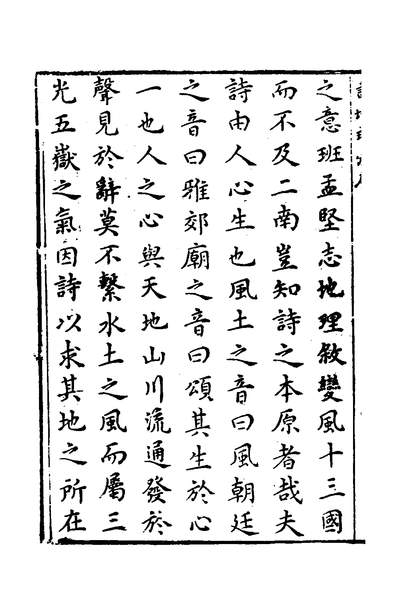 之意班孟堅志地理敘變風十三國
而不及二南豈知詩之本原者哉夫
詩由人心生也風土之音曰風朝廷
之音曰雅郊廟之音曰頌其生於心
一也人之心與天地山川流通發於
聲見於辭莫不繫水土之風而屬三
光五嶽之氣因詩以求其地之所在